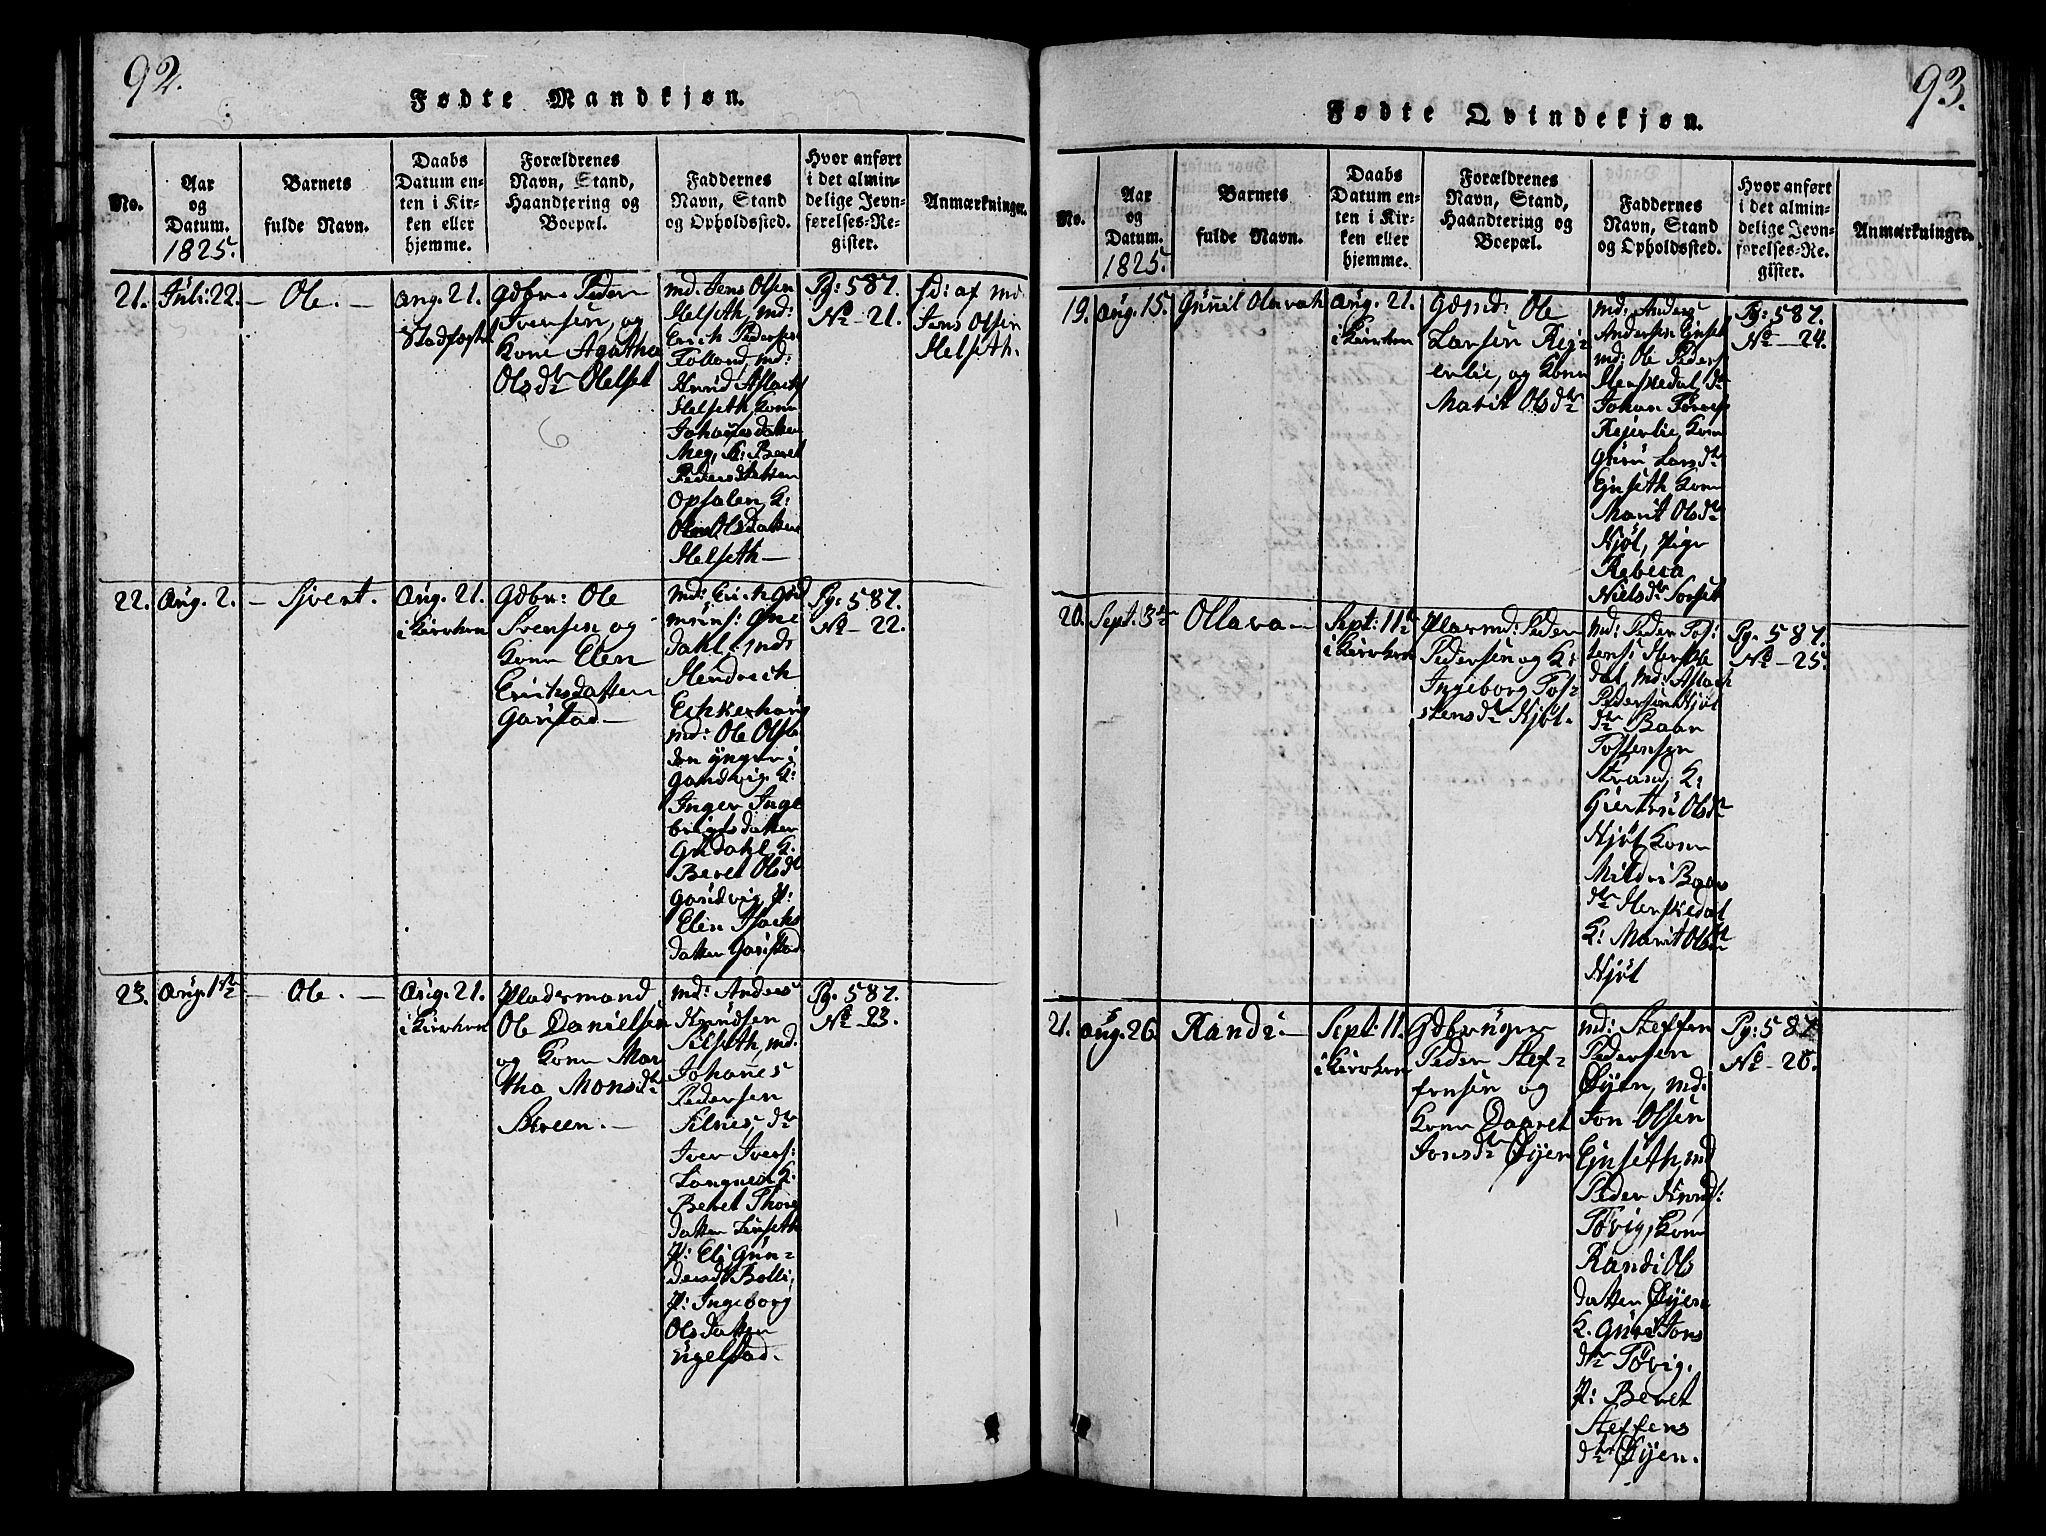 92.
Fødte Mandkjøn.
No.
Aar
og
Datum.
1825.
Barnets
fulde Navn.
Daabs
Datum en-
ten i Kir-
ken eller
hjemme.
Forældrenes
Navn, Stand,
Haandtering og
Boepæl.
Faddernes
Navn, Stand
og Opholdssted.
Hvor anført
i det almin-
delige Jevn-
førelses-Re-
gister.
Anmærkninger.
21.
Juli: 22.
Ole.
Aug. 21.
Gdbr. Peder
Iversen, og
Kone Agatha
Olsdr Helset
md: Jens Olsen
Helseth, md:
Erich Pedersen
Tolland, md:
Helseth, Kone
Johannesdatter
Meg, K: Beret
Pedersdatter
Opsalen, K:
Olsdatter
Helseth
Pg: 587.
No 21.
fd: af md.
Jens Olsen
Helseth.
22.
Aug. 2.
Sivert.
Aug. 21.
i Kirken
Gdbr: Ole
Svensen og
Kone Elen
Erichsdatter
Garstad
md: Erich
dahl, md:
Hendrich
md: Ole Olsen
den yngre
K:
Inger Inge
brigtsdatter
K.
Beret Olsdr
P:
Elen Aslachs
datter Garstad
Pg: 587.
No 22.
23.
Aug. 1ste
Ole.
Aug. 21.
i Kirken
Pladsmand
Ole Danielsen
og Kone Mar
tha Monsdr
Breen.
md: Anders
Knudsen
Silseth, md.
Johannes
Pedersen
Silnes, dr
Iver Ivers:
Langnes K.
Beret Thors
datter Linseth
P: Eli Gun-
dersdr Bolli,
P: Ingeborg
Olsdatter
Ugelstad.
Pg. 587.
No 23.
93.
Fødte Qvindekjøn.
No.
Aar
og
Datum.
1825.
Barnets
fulde Navn.
Daabs
Datum en-
ten i Kir-
ken eller
hjemme.
Forældrenes
Navn, Stand,
Haandtering og
Boepæl.
Faddernes
Navn, Stand
og Opholdssted.
Hvor anført
i det almin-
delige Jevn-
førelses-Re-
gister.
Anmærkninger.
19.
Aug. 15.
Gunnil Olavah
Aug. 21.
i Kirken
Gdmd: Ole
Larsen Rej-
erlie, og Kone
Marit Olsdr
md: Anders
Andersen Ejnset
md: Ole Peders
Henskedal, dr
Johan
Rejerlie, Kone
Guru Larsdr
Ejnseth Kone
Marit Olsdr
Kjøl, Pige
Rebeca
Nielsdr
Pg: 587.
No 24.
20.
Sept. 3die
Ollava
Sept: 11te
i Kirken
Pladsmd: Peder
Pedersen og K:
Ingeborg Tos-
stensdr Kjøl.
md: Peder Tos:
tens: Henske
dal, md: Aslach
Pedersen Kjøl
dr Baar
Tostensen
Strand, K:
Giertru Olsdr
Kjøl Kone
Mildri Baars
dr Henskedal
K: Marit Olsdr
Kjøl
Pg. 587.
No 25.
21.
Aug. 26.
Randi
Sept: 11.
i Kirken
Gdbruger
Peder Stef-
fensen og
Kone Baaret
Jonsdr Øyen
md: Steffen
Pedersen
Øyen, md:
Jon Olsen
Ejnseth, md
Peder Knud:
Tøvig, Kone
Randi Ols
datter Øyen
K. Guri Jons
dr Tøvig.
P: Beret
Steffens
dr Øyen.
Pg: 587
No 26.